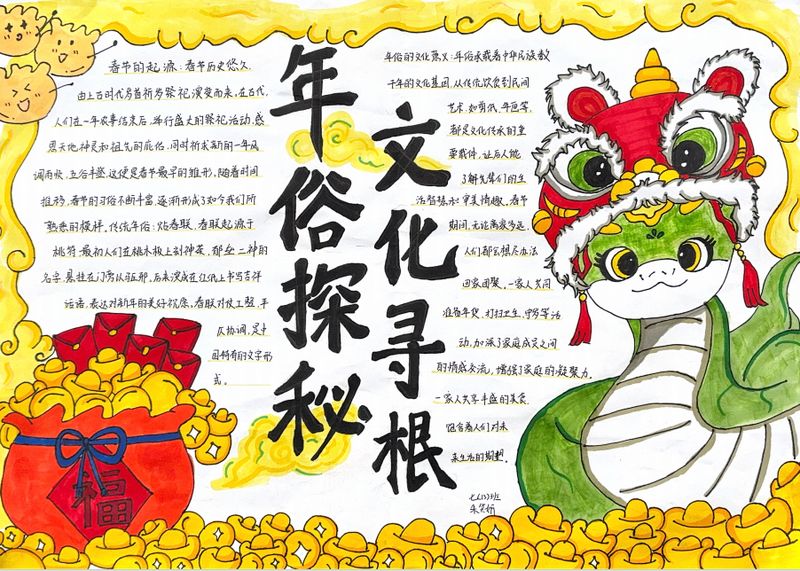 年俗探秘
文化寻根
春节的起源：春节历史悠久，
由上古时代岁首祈岁祭祀演变而来，在古代，
人们在一年农事结束后，举行盛大的祭祀活动，感
恩天地神灵和祖先的庇佑，同时祈求新的一年风
调雨顺、五谷丰登，这便是春节最早的雏形，随着时间
推移，春节的习俗不断丰富，逐渐形成了如今我们所
熟悉的模样。传统年俗：贴春联，春联起源于
桃符，最初人们在桃木板上刻神荼、郁垒二神的
名字，悬挂在门旁以驱邪，后来演成在红纸上书写吉祥
话语，表达对新年的美好祝愿，春联对仗工整、平
仄协调，是中
国特有的文字形
式。
年俗的文化意义：年俗承载着中华民族数
千年的文化基因，从传统饮食到民间
艺术，如剪纸、年画等，
都是文化传承的重
要载体，让后人能
了解先辈们的生
活智慧和审美情趣，春节
期间，无论离家多远，
人们都会想尽办法
回家团聚，一家人共同
准备年货、打扫卫生、守岁等活
动，加深了家庭成员之间
的情感交流，增强了家庭的凝聚力，
一家人共享丰盛的美食，
饱含着人们对未
来生活的期望。
福